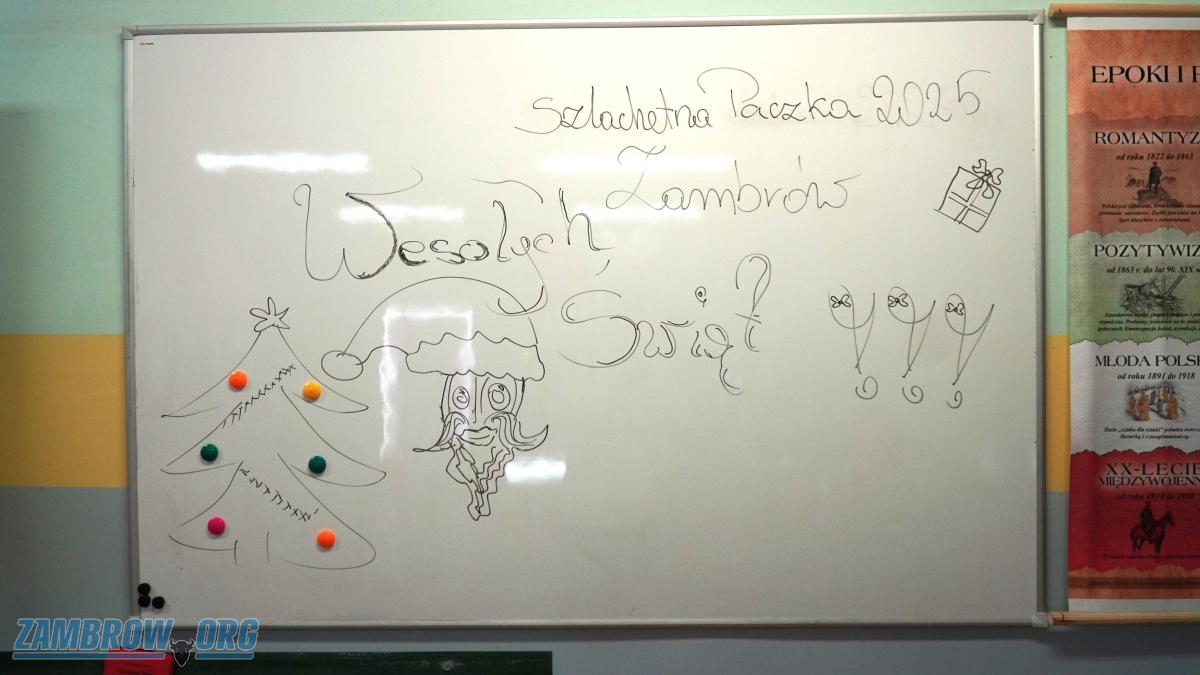 Szlachetna Paczka 2025
Zambrów
Wesołych
Świąt !!!
EPOKI I
ROMANTYZ
od roku 1822 do 1863
POZYTYWIZ
od 1863 r. do lat 90. XIX w
MŁODA POLSK
od roku 1891 do 1918
XX-LECIE
MIĘDZYWOJENN
od roku 1918 do 1939
ZAMBROW.ORG